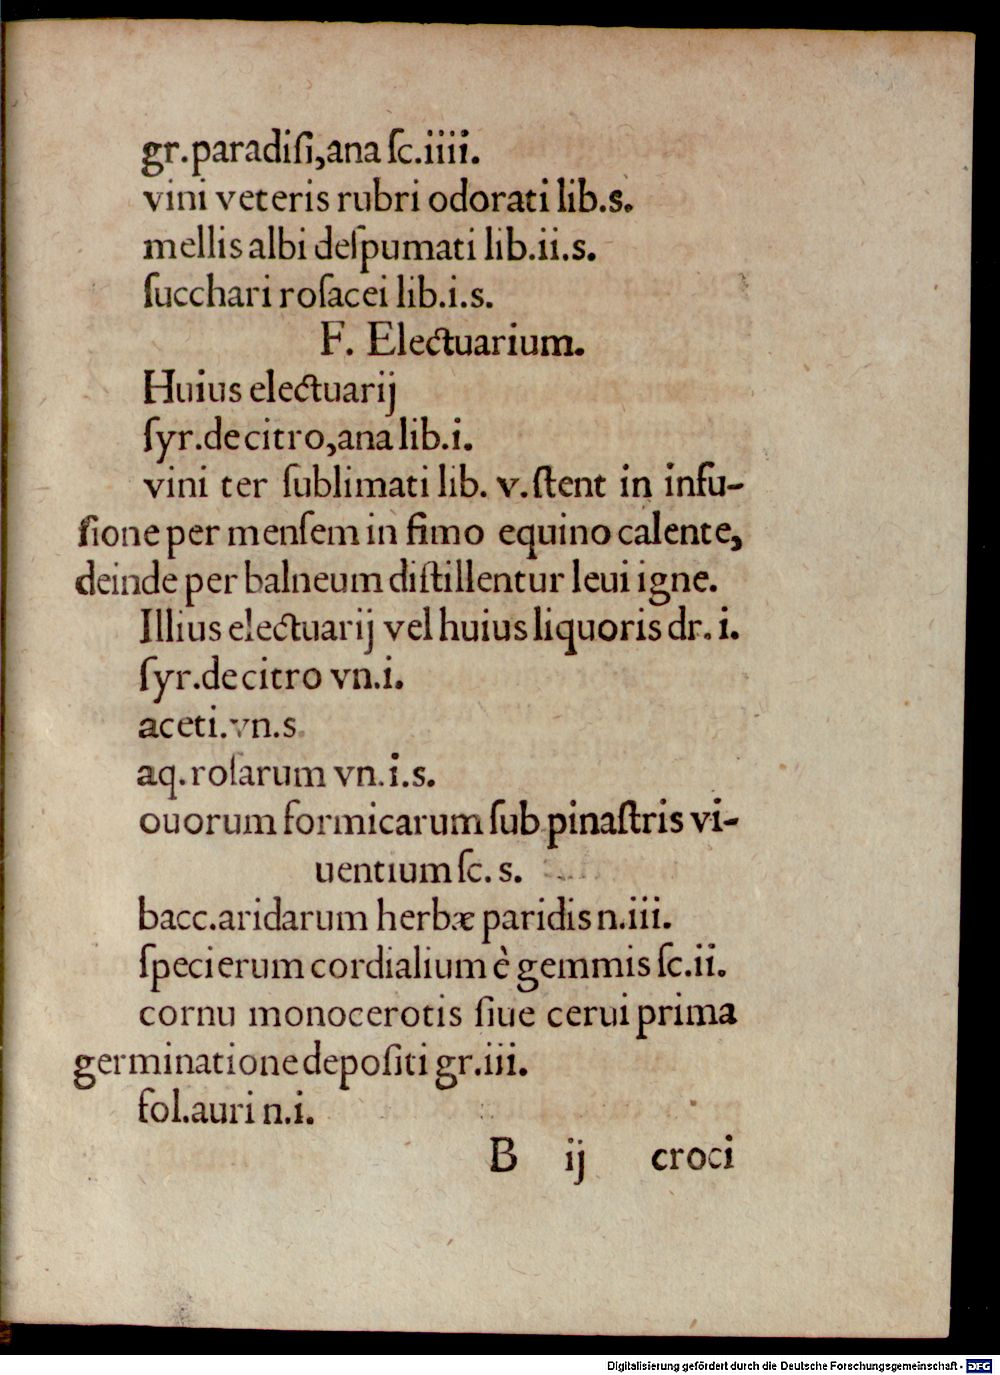 gr.paradiſi,ana ſc.iiii.
vini veteris rubri odorati lib.s.
mellis albi deſpumati lib.ii.s.
ſucchari roſacei lib.i.s.
F. Electuarium.
Huius electuarij
ſyr.de citro,ana lib.i.
vini ter ſublimati lib. v.ſtent in infu-
ſione per menſem in fimo equino calente,
deinde per balneum diſtillentur leui igne.
Illius electuarij vel huius liquoris dr. i.
ſyr.de citro vn.i.
aceti.vn.s.
aq.roſarum vn.i.s.
ouorum formicarum ſub pinaſtris vi-
uentium ſc. s.
bacc.aridarum herbæ paridis n.iii.
ſpecierum cordialium è gemmis ſc.ii.
cornu monocerotis ſiue cerui prima
germinatione depoſiti gr.iii.
fol.auri n.i.
B ij croci
Digitalisierung gefördert durch die Deutsche Forschungsgemeinschaft - DFG